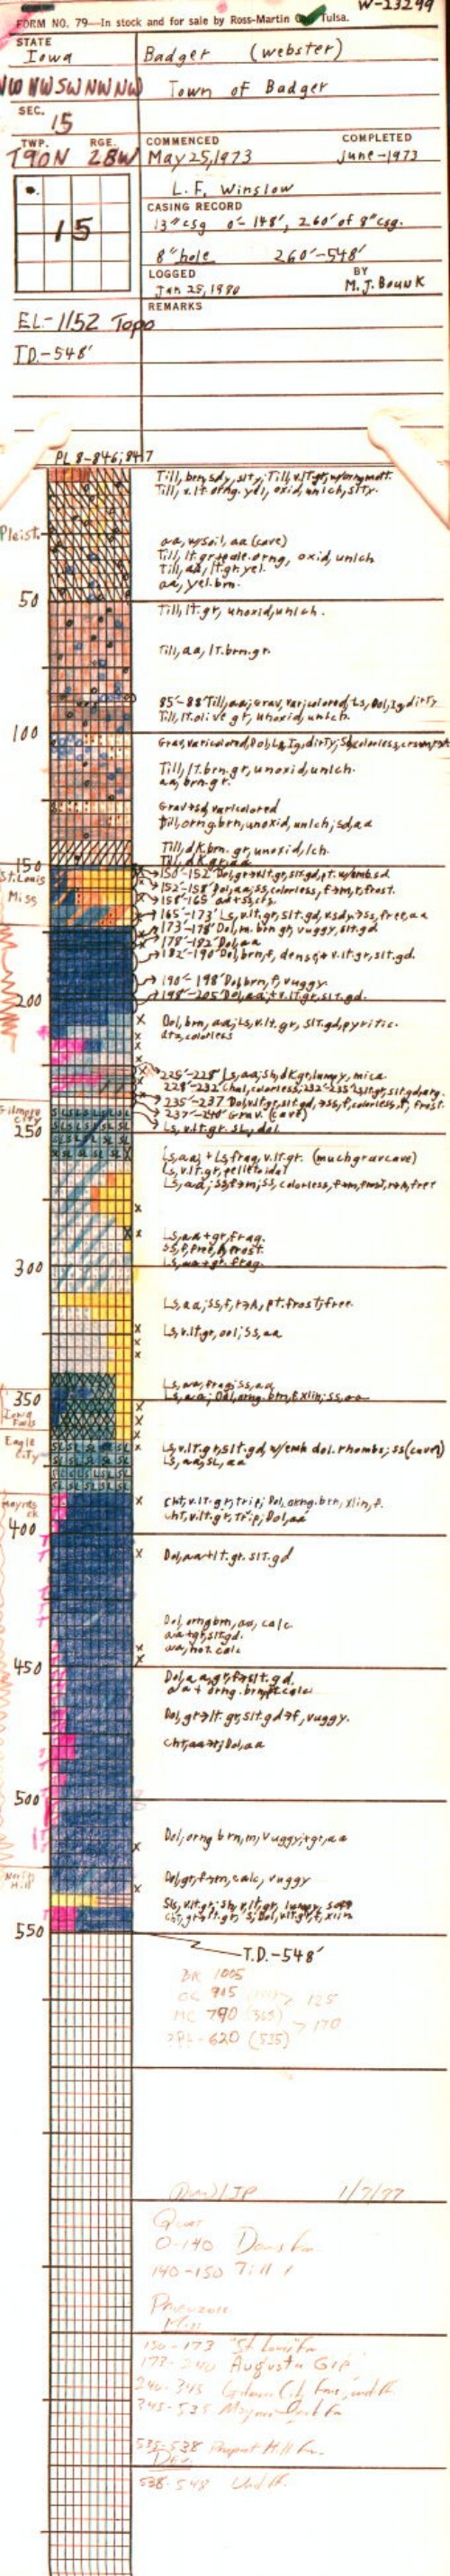 W-23299
FORM NO. 79—In stock and for sale by Ross-Martin Tulsa.
STATE
Iowa
Badger (Webster)
NW NW SW NW NW
Town of Badger
SEC.
15
TWP. RGE.
T90N 28W
COMMENCED COMPLETED
May 25, 1973 June-1973
15
L.F. Winslow
CASING RECORD
13" csg 0'-148', 260' of 8" csg.
8" hole 260'-548'
LOGGED BY
Jan 25, 1980 M.J. Bounk
REMARKS
EL.-1152 Topo
T.D.-548'
PL 8-846; 847
Till, brn, sdy, slty; Till, v.lt gr, w/orng mott.
Till, v.lt. orng. yel, oxid, unlch, slty.
Pleist.
aa, w/soil, aa (cave)
Till, lt. gr pale. orng, oxid, unlch
Till, aa, lt. gr. yel.
aa, yel. brn.
50
Till, lt. gr, unoxid, unlch.
Till, aa, lt. brn. gr.
85'-88' Till, aa; Grav, varicolored, Ls, Dol, Ig, dirty
Till, lt. olive gr, unoxid, unlch.
100
Grav, varicolored, Dol, Ls, Ig, dirty; Sd, colorless,
Till, lt. brn. gr, unoxid, unlch.
aa, brn. gr.
Grav + sd, varicolored
Till, orng brn, unoxid, unlch; sd, aa
Till, dk. brn. gr, unoxid, lch.
Till, dk gr, aa
150
150'-152' Dol, gr→v.lt gr, slt. gd, pt. w/emb. sd
St. Louis
152'-158' Dol, aa; ss, colorless, f→m, r, frost.
Miss
158'-165' aa + ss, cts
165'-173' Ls, v.lt. gr, slt. gd, v. sdy→ss, free, aa
173'-178' Dol, m. brn gr, vuggy, slt. gd
178'-182' Dol, aa
182'-190' Dol, brn, f, dense + v.lt. gr, slt. gd.
190'-198' Dol, brn, f, vuggy
200
198'-205' Dol, aa, + v.lt. gr, slt. gd.
Dol, brn, aa; Ls, v.lt. gr, slt. gd, pyritic.
qtz, colorless
225'-228' Ls, aa; sh, dk gr, lumpy, mica
228'-232' Chal, colorless; 232'-235' Ls, lt gr, slt gd, arg.
235'-237' Dol, v.lt gr, slt. gd, →ss, f, colorless, r, frost.
Gilmore City
237'-240' Grav. (cave)
Ls, v.lt. gr, SL, dol
250
Ls, aa; + Ls frag, v.lt. gr. (much grav cave)
Ls, v.lt. gr, pelletoidal
Ls, aa; ss, f→m; ss, colorless, f→m, frost, r→A, free
Ls, aa + gr, frag.
ss, f, free, A, frost.
Ls, aa + gr. frag.
300
Ls, aa; ss, f, r→A, pt. frost, free.
Ls, v.lt. gr, ool; ss, aa
Ls, aa, frag; ss, aa
350
Ls, aa; Dol, orng. brn, f, xlin; ss, aa
Iowa Falls
Eagle City
Ls, v.lt. gr, slt. gd, w/emb dol. rhombs; ss (cave)
Ls, aa, SL, aa
Maynes Ck
Cht, v.lt. gr, trip; Dol, orng. brn, xlin, f.
Cht, v.lt. gr, trip; Dol, aa
400
Dol, aa + lt. gr. slt. gd
Dol, orng brn, aa, calc
aa + gr, slt. gd.
aa, not calc
450
Dol, aa, gr, f→slt. gd
aa + orng. brn, pt calc
Dol, gr→lt. gr, slt. gd→f, vuggy.
Cht, aa; Dol, aa
500
Dol, orng brn, m, vuggy, + gr, aa
Dol, gr, f→m, calc, vuggy
North Hill
Sls, v.lt. gr; sh, v.lt. gr, lumpy, soft
Cht, gr→lt. gr, S; Dol, v.lt gr, f, xlin
550
T.D.-548'
BR 1005
GC 905 125
MC 790 (365) 170
PPL-620 (535)
1/7/97
Quat
0-140
140-150 Till
Paleozoic
Miss
150-173 "St. Louis" Fm
173-240 Augusta Grp
240-345 Gilmore City Fm, undiff.
345-535 Maynes Creek Fm
535-538 Prospect Hill Fm.
Dev.
538-548 Undiff.